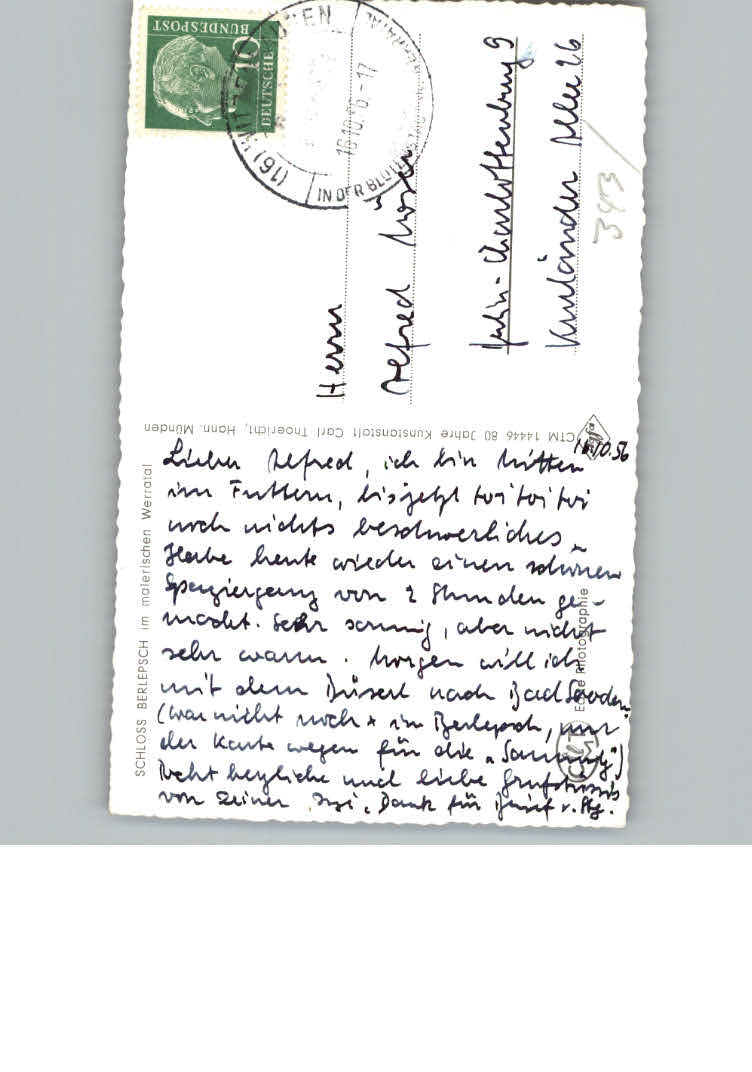 DEUTSCHE
BUNDESPOST
10
(16) WITZE USEN
16.10.56.-17
IN DER BLÜTEN
Herrn
Alfred
Berlin-Charlottenburg 9
Kurländer Allee 26
343
CTM 14446 80 Jahre Kunstanstalt Carl Thoericht, Hann. Münden
Agfa
SCHLOSS BERLEPSCH im malerischen Werratal
Echte Photographie
16.10.56
Lieber Alfred, ich bin mitten
im Futtern, bis jetzt toi toi toi
noch nichts beschwerliches.
Habe heute wieder einen schönen
Spaziergang von 2 Stunden ge-
macht. Sehr sonnig, aber nicht
sehr warm. Morgen will ich
mit dem nach Bad Sooden.
(war nicht noch x in Berlepsch, nur
der Karte wegen für die "Sammlg")
Recht herzliche und liebe
von Deiner Dank für Brief v. Stg.